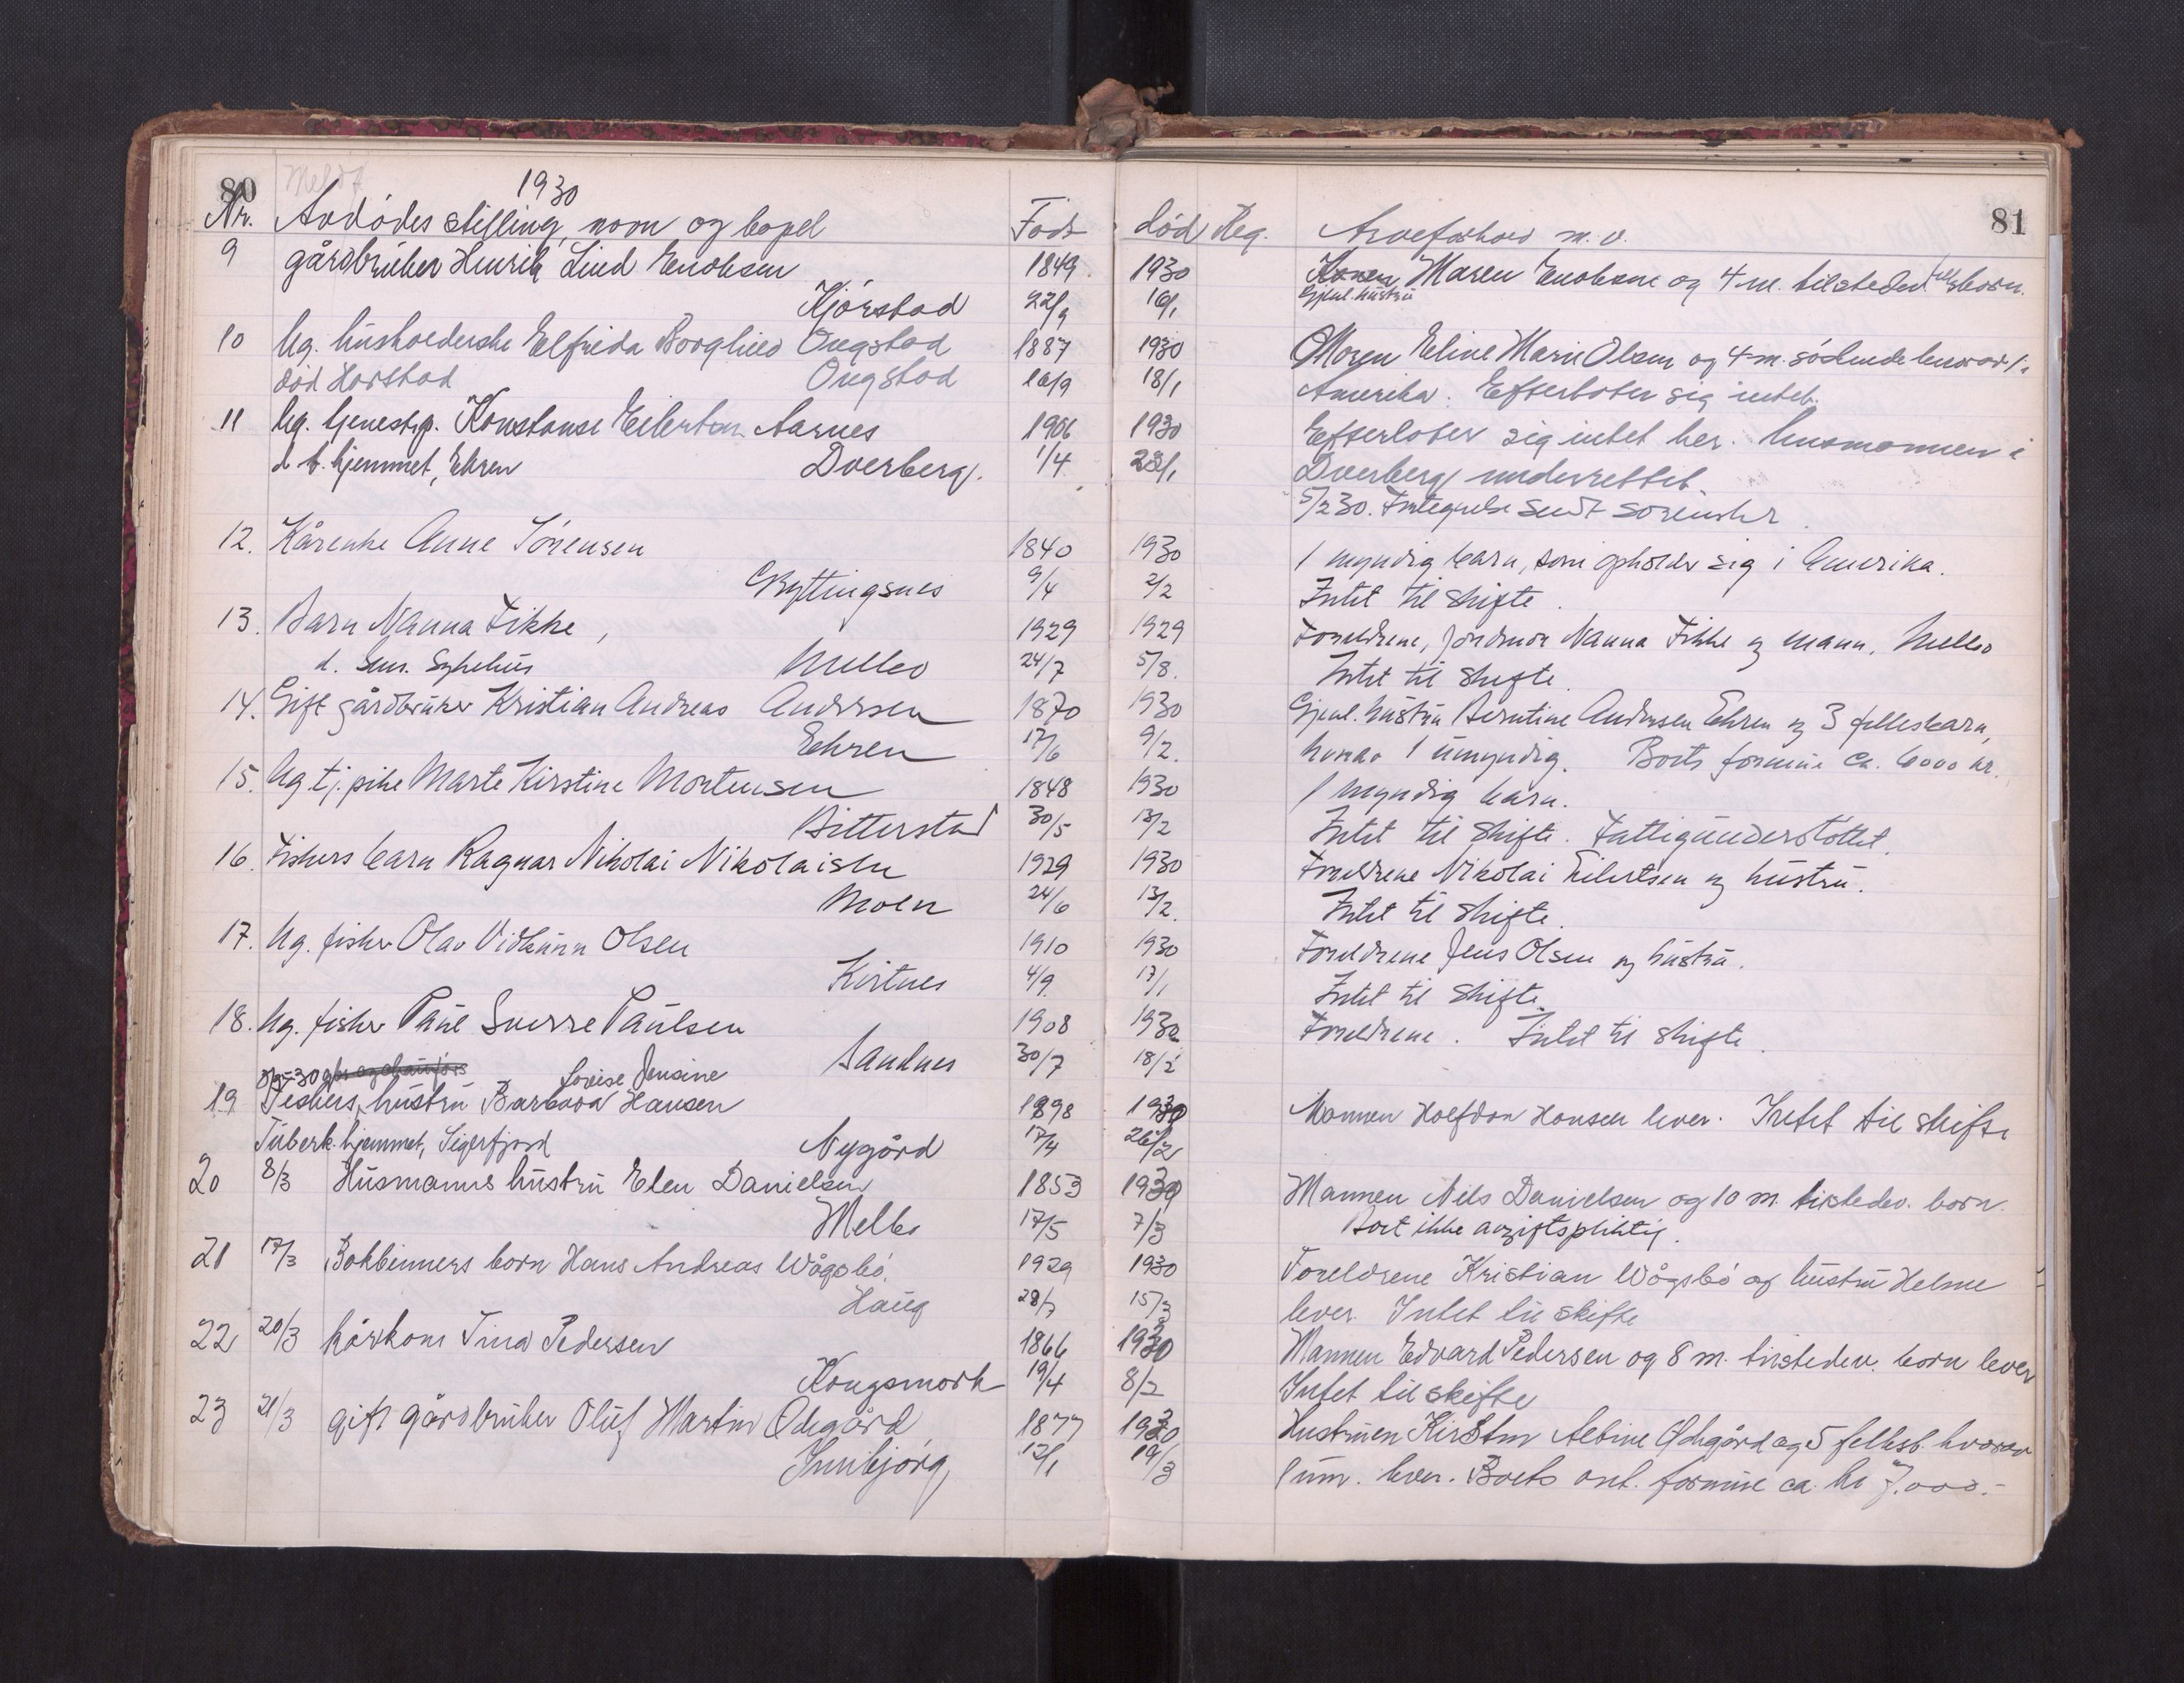 80 Meldt 1930 81
Nr. Avdødes stilling, navn og bopel Født død Reg. Arveforhold m.v.
9 gårdbruker Henrik Lind Enoksen 1849. 1930 Konen Maren Enoksen og 4 m. tilstedev. fellesbarn.
Kjørstad 22/9 16/1 Gjenl. hustru
10 Ug. husholderske Elfrida Borghild Ongstad 1887 1930 Moren Eline Marie Olsen og 4 m. søskende hvorav 1 i
død Harstad Ongstad 16/9 18/1 Amerika. Efterlater sig intet.
11 Ug. tjenestep. Konstanse Eilertsen Aarnes 1906 1930 Efterlater sig intet her. Lensmannen i
d. t. hjemmet, Ehren Dverberg. 1/4 28/1 Dverberg underrettet.
5/2 30. Fortegnelse sendt sorenskr.
12. Kårenke Anne Sørensen 1840 1930 1 myndig barn, som opholder sig i Amerika.
Gryttingsnes 9/4 2/2 Intet til skifte.
13. Barn Nanna Fikke, 1929 1929 Foreldrene, jordmor Nanna Fikke og mann, Melbo
d. Sykehus Melbo 24/7 5/8. Intet til skifte.
14. Gift gårdbruker Kristian Andreas Andersen 1870 1930 Gjenl. hustru Berntine Andersen Ehren og 3 fellesbarn,
Ehren 17/6 9/2. hvorav 1 umyndig. Boets formue ca. 6000 kr.
15. Ug tj. pike Marte Kirstine Mortensen 1848 1930 1 myndig barn.
Bitterstad 30/5 13/2 Intet til skifte. Fattigunderstøttet.
16. Fiskers barn Ragnar Nikolai Nikolaisen 1929 1930 Foreldrene Nikolai Eilertsen og hustru.
Moen 24/6 13/2. Intet til skifte.
17. Ug. fisker Olav Vidkunn Olsen 1910 1930 Foreldrene Jens Olsen og hustru.
Kirtnes 4/9. 17/1 Intet til skifte.
18. Ug. fisker Paul Sverre Paulsen 1908 1930 Foreldrene. Intet til skifte.
Sandnes 30/7 18/2
Lovise Jensine
19 Fiskers hustru Barbara Hansen 1898 1930 Mannen Halfdan Hansen lever. Intet til skifte
Tuberk. hjemmet, Sigerfjord Nygård 17/4 26/2
20 8/3 Husmanns hustru Elen Danielsen 1853 1930 Mannen Nils Danielsen og 10 m. tilstedev. barn.
Melbo 17/5 7/3 Boet ikke avgiftspliktig.
21 17/3 Bokbinners barn Hans Andreas Wågsbø. 1929 1930 Foreldrene Kristian Wågsbø og hustru Helene
Haug 28/7 15/3 lever. Intet til skifte
22 20/3 kårkone Tina Pedersen 1866 1930 Mannen Edvard Pedersen og 8 m. tilstedev. barn lever
Kongsmark 19/4 8/2 Intet til skifte
23 21/3 gift gårdbruker Oluf Martin Ødegård 1877 1930 Hustruen Kirstin Albine Ødegård og 5 fellesb. hvorav
Innbjørg, 12/1 19/3 1 um. lever. Boets ant. formue ca. kr 7.000.-